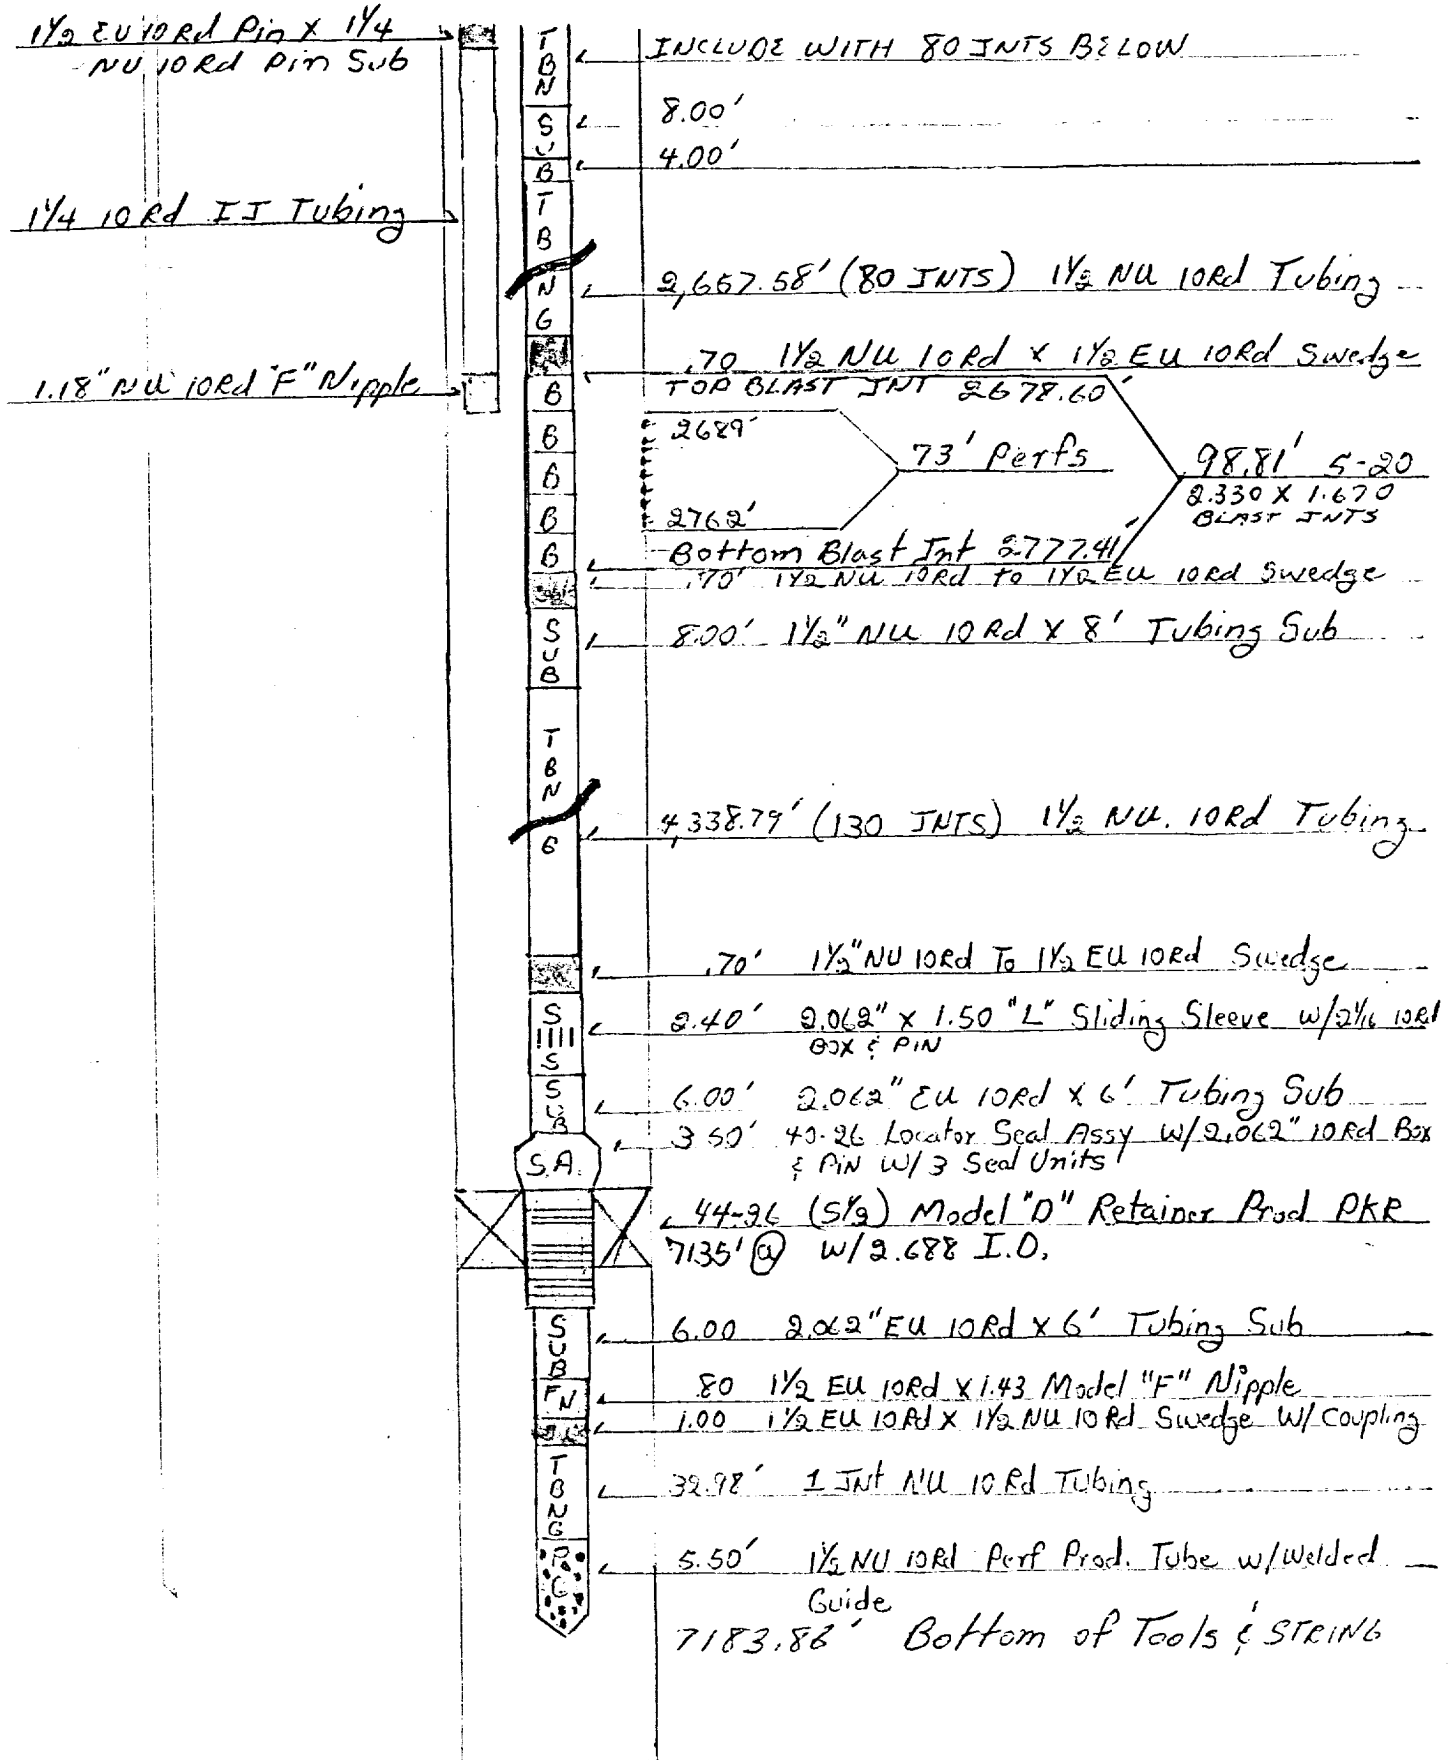 1½ EU 10 Rd Pin X 1¼
NU 10 Rd Pin Sub
1¼ 10 Rd IJ Tubing
1.18" NU 10Rd "F" Nipple
TBN
SUB
TBNG
B
B
B
B
B
SUB
TBNG
S
S
SUB
S.A.
SUB
FN
TBNG
INCLUDE WITH 80 JNTS BELOW
8.00'
4.00'
2,657.58' (80 JNTS) 1½ NU 10Rd Tubing
.70 1½ NU 10Rd X 1½ EU 10Rd Swedge
TOP BLAST JNT 2678.60'
2689'
73' Perfs
98.81' 5-20
2.330 X 1.670
BLAST JNTS
2762'
Bottom Blast Jnt 2777.41'
.70' 1½ NU 10Rd to 1½ EU 10Rd Swedge
8.00' 1½" NU 10 Rd X 8' Tubing Sub
4,338.79' (130 JNTS) 1½ NU. 10Rd Tubing
.70' 1½" NU 10Rd To 1½ EU 10Rd Swedge
2.40' 2.062" X 1.50 "L" Sliding Sleeve W/2 1/16 10Rd
BOX & PIN
6.00' 2.062" EU 10Rd X 6' Tubing Sub
3.50' 40-26 Locator Seal Assy W/2.062" 10Rd Box
& PIN W/3 Seal Units
44-26 (5½) Model "D" Retainer Prod PKR
7135' @ W/2.688 I.D.
6.00 2.062" EU 10Rd X 6' Tubing Sub
.80 1½ EU 10Rd X 1.43 Model "F" Nipple
1.00 1½ EU 10Rd X 1½ NU 10Rd Swedge W/Coupling
32.98' 1 Jnt NU 10Rd Tubing
5.50' 1½ NU 10Rd Perf Prod. Tube w/Welded
Guide
7183.86' Bottom of Tools & STRING